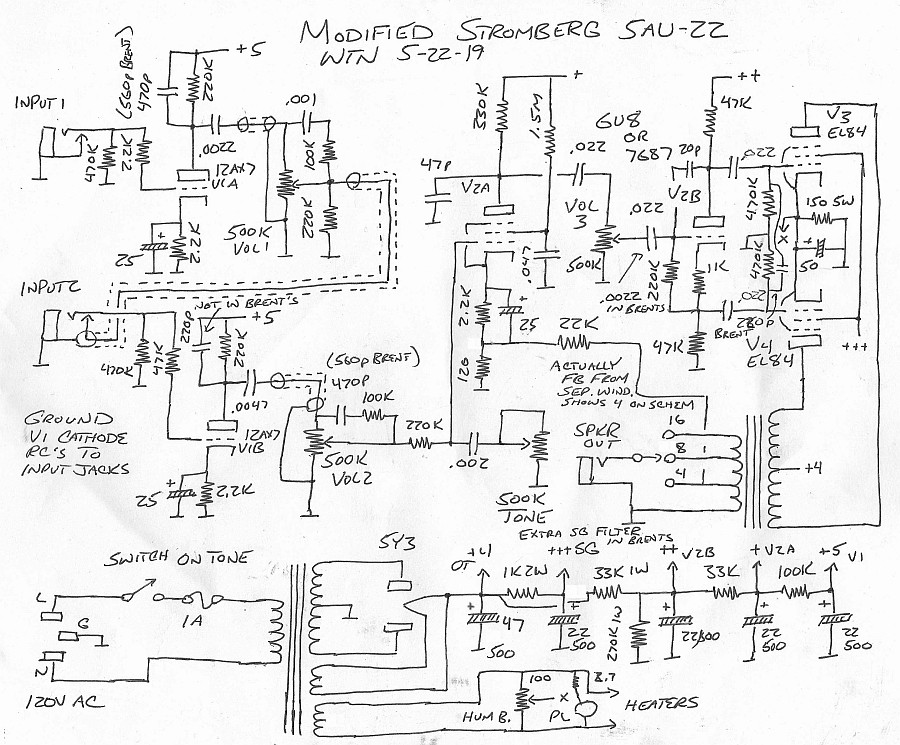 MODIFIED STROMBERG SAU-22
WTN 5-22-19
INPUT 1
(560p BRENT)
470p
220K
+5
.0022
.001
470K
2.2K
12AX7
V1A
100K
220K
500K
VOL 1
+
25
2.2K
INPUT 2
NOT IN BRENT'S
+5
220p
220K
470K
47K
.0047
(560p BRENT)
470p
100K
12AX7
V1B
+
25
2.2K
500K
VOL 2
220K
GROUND
V1 CATHODE
RC'S TO
INPUT JACKS
330K
1.5M
+
47p
V2A
.022
6U8
OR
7687
VOL
3
500K
.0047
2.2K
+
25
120
22K
.002
500K
TONE
.022
.0022
IN BRENTS
220K
V2B
20p
++
47K
.022
1K
47K
.022
BRENT
220p
470K
470K
X
V3
EL84
150 5W
+
50
V4
EL84
+++
ACTUALLY
FB FROM
SEP. WIND.
SHOWS 4 ON SCHEM
16
8
4
SPKR
OUT
+4
EXTRA SG FILTER
IN BRENTS
SWITCH ON TONE
L
G
N
1A
120V AC
5Y3
+4
OT
1K 2W
+++ SG
33K 1W
++ V2B
33K
+ V2A
100K
+5 V1
+
47
500
+
22
500
270K 1W
+
22/500
+
22
500
+
22
500
100
X
8.7
HUM B.
PL
HEATERS